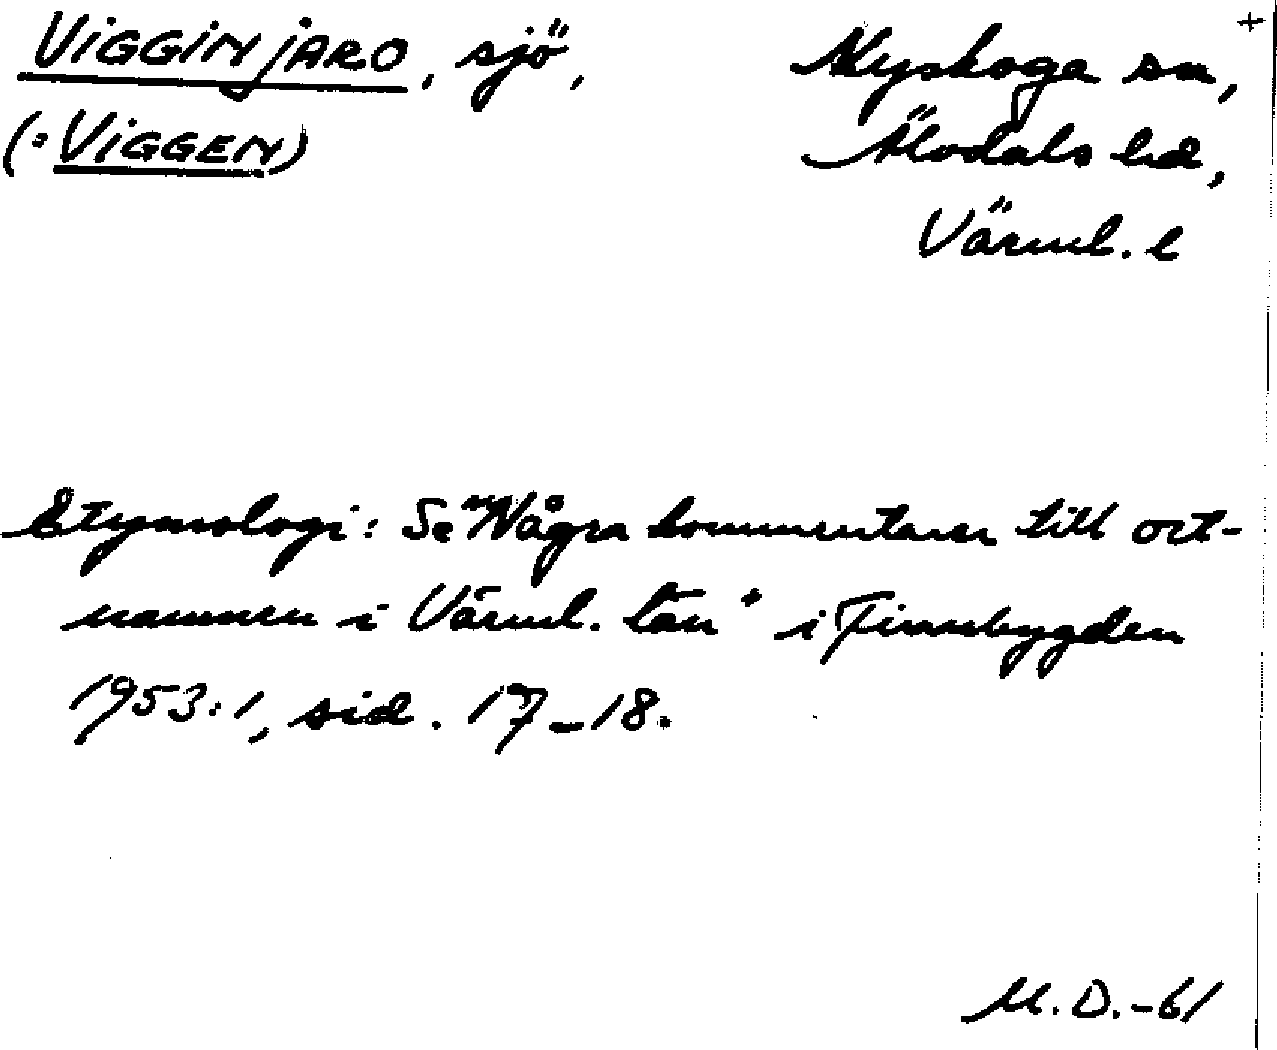 VIGGINJARO, sjö, Nyskoga sn, +
(= VIGGEN) Älvdals hd,
Värml. l
Etymologi: Se "Några kommentarer till ort-
namnen i Värml. län" i Finnbygden
1953:1, sid. 17-18.
M.D.-61